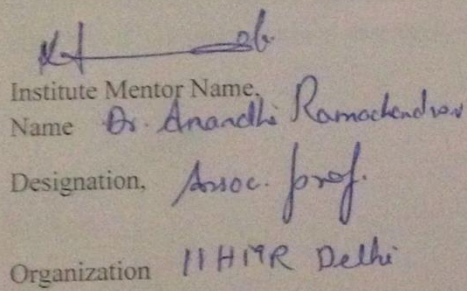 Institute Mentor Name,
Name Dr. Anandhi Ramachandran
Designation, Assoc. prof.
Organization IIHMR Delhi